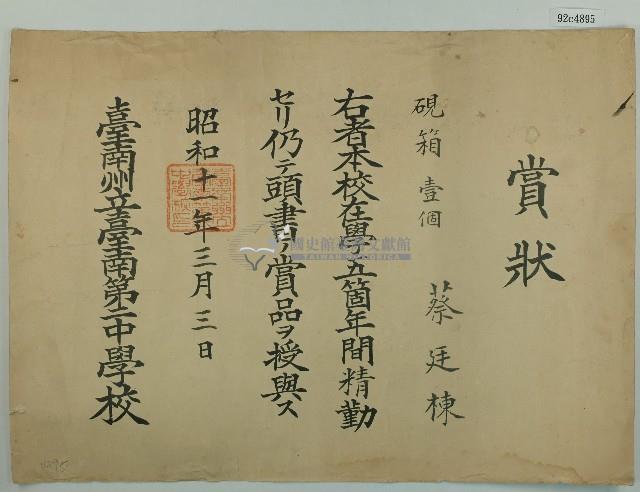 92c4895
賞狀
硯箱壹個
蔡廷棟
右者本校在學五箇年間精勤
セリ仍テ頭書ノ賞品ヲ授與ス
昭和十一年三月三日
臺南州立臺南第二中學校
國史館臺灣文獻館
TAIWAN HISTORICA